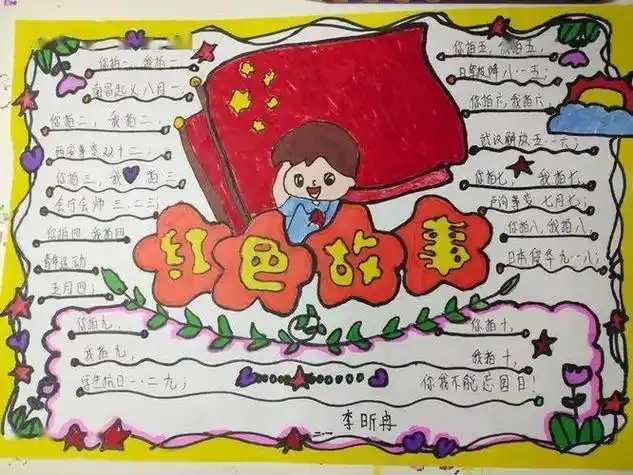 你拍一,我拍一,
南昌起义八月一;
你拍二,我拍二,
西安事变双十二;
你拍三,我拍三
会宁会师三.二三;
你拍四,我拍四
青年运动
五月四;
你拍五,我拍五,
日军投降八·一五;
你拍六,我拍六,
武汉解放五一六;
你拍七,我拍七,
卢沟事变七月七;
你拍八,我拍八,
日本侵华九·一八;
红色故事
你拍九,
我拍九,
学生抗日一·二九;
你拍十,
我拍十,
你我不能忘国日!
李昕冉